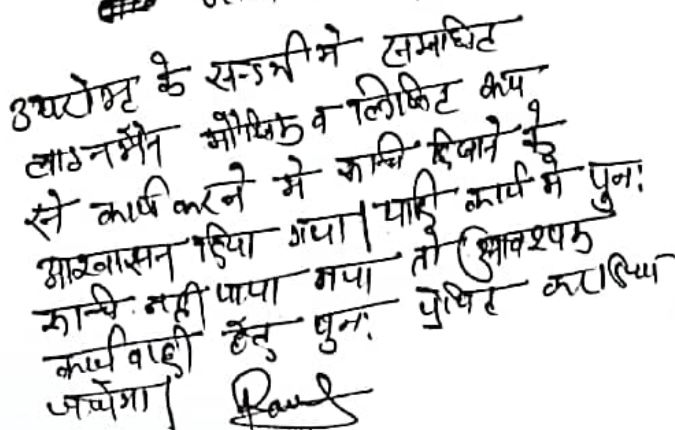 उपरोक्त के सन्दर्भ में सम्बन्धित
लाइनमैन मौखिक व लिखित रूप
से कार्य करने में रूचि दिखाने के
आश्वासन दिया गया। यदि कार्य में पुनः
रूचि नही पाया गया तो आवश्यक
कार्यवाही हेतु पुनः प्रेषित करा दिया
जायेगा।